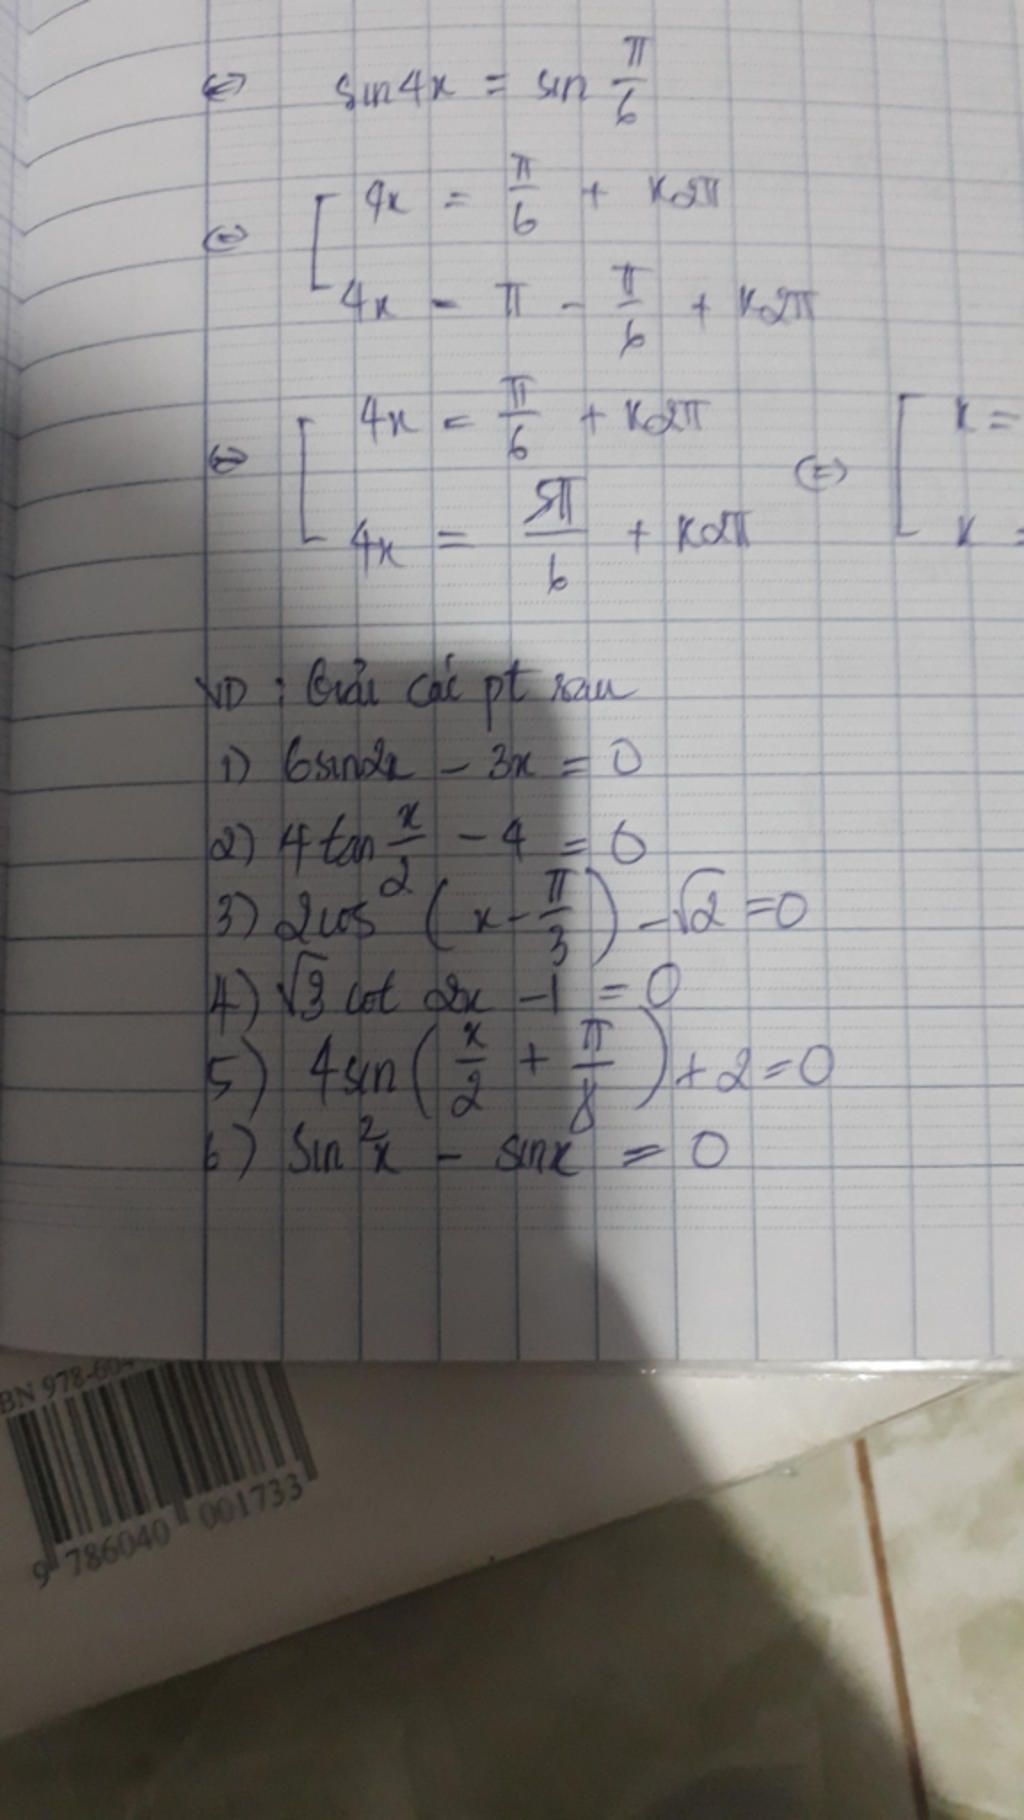 <=> sin4x = sin π/6
<=> [ 4x = π/6 + k2π
4x = π - π/6 + k2π
<=> [ 4x = π/6 + k2π <=> [ x =
4x = 5π/6 + k2π x =
VD : Giải các pt sau
1) 6sin2x - 3x = 0
2) 4tan x/2 - 4 = 0
3) 2cos² (x - π/3) - √2 = 0
4) √3 cot 2x - 1 = 0
5) 4sin(x/2 + π/8) + 2 = 0
6) sin²x - sinx = 0
9 786040 001733